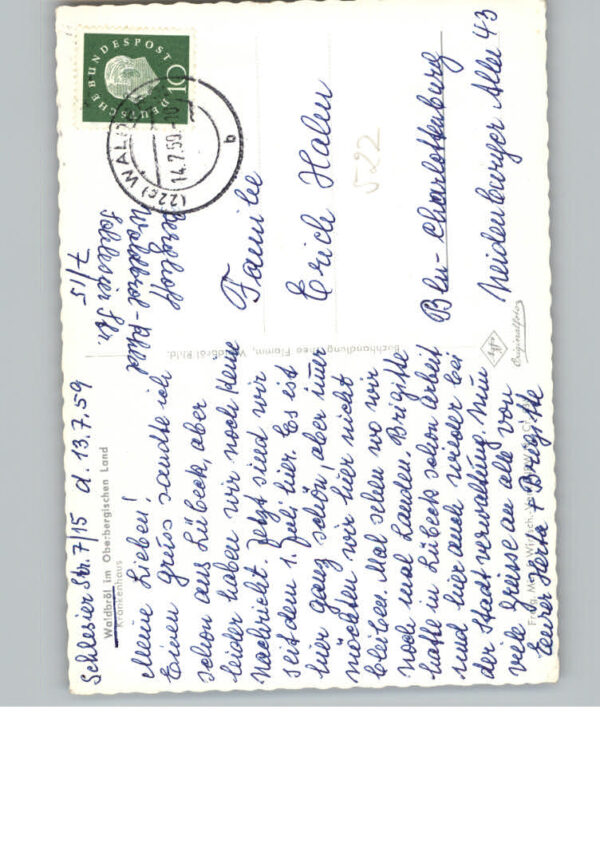 Schlesier Str. 7/15 d. 13.7.59
Waldbröl im Oberbergischen Land
Krankenhaus
Meine Lieben!
Einen Gruss sandte ich
schon aus Lübeck, aber
leider haben wir noch keine
Nachricht. Jetzt sind wir
seit dem 1. Juli hier. Es ist
hier ganz schön, aber immer
möchten wir hier nicht
bleiben. Mal sehen wo wir
noch mal landen. Brigitte
hatte in Lübeck schon Arbeit
und hier auch wieder bei
der Stadtverwaltung. Nun
viele Grüsse an alle von
Eurer Herta & Brigitte
Buchhandlung Theo Flamm, Waldbröl Rhld.
DEUTSCHE BUNDESPOST
10
(22c) WALDBRÖL
14.7.59
b
Waldbröl-Rhld
Schlesier Str.
7/15
Familie
Erich Hahn
522
Bln-Charlottenburg
Neidenburger Allee 43
Agfa
Originalfoto